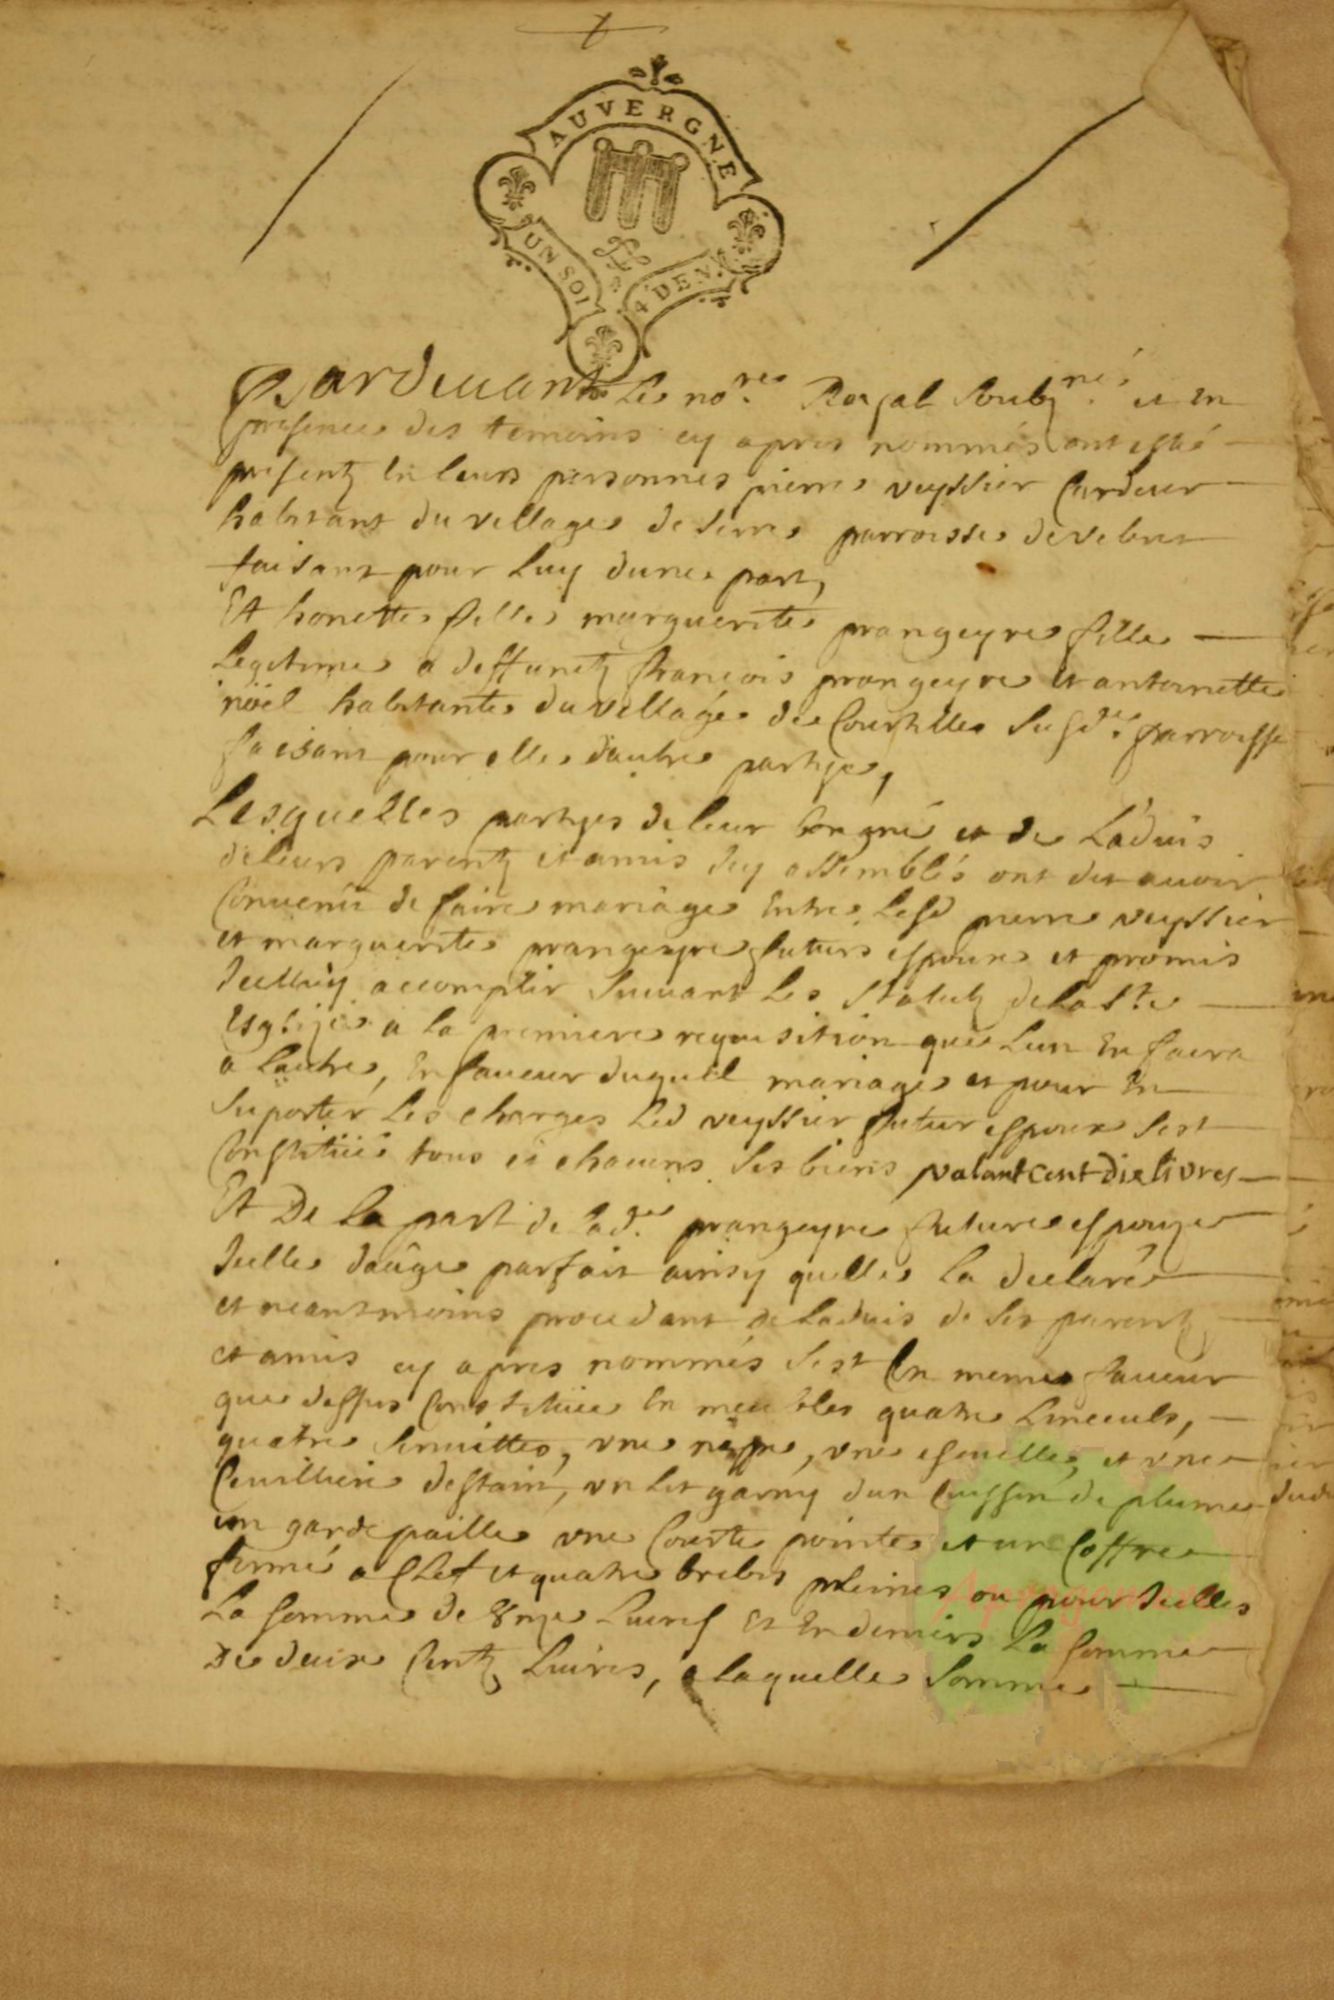 AUVERGNE
UN SOL
4 DEN.
Pardevant Le no.re Royal soubz.né et en
presence des temoins cy apres nommés ont esté
presentz en leurs personnes pierre veyssier Cardeur
habitant du village de serre parroisse de
faisant pour luy dune part,
Et honette fille marguerite prangeyre fille
Legitime a deffunctz francois prangeyre et antoinette
noël habitante du village de Courtilles susd.e parroisse
faisant pour elle dautre partye,
Lesquelles partyes de leur bon gré et de Ladvis
de leurs parentz et amis icy assemblés ont dit avoir
Convenu de faire mariage Entre Lesd pierre veyssier
et marguerite prangeyre futurs espoux et promis
Icelluy accomplir suivant Les statutz de la s.te
Esglize a la premiere requisition que Lun En faira
a Lautre, En faveur duquel mariage et pour En
suporter Les charges Led veyssier futur espoux sest
Constitué tous et chacuns ses biens valant cent dix livres
Et De La part de lad.e prangeyre future espouze
Icelle dâûge parfait ainsy quelle La declaré
et neantmoins procedant de Ladvis de ses parentz
et amis cy apres nommés sest En meme faveur
que dessus Constituée En meubles quatre Linceuls,
quatre serviettes, une nappe, une escuelle, et une
Cuilliere destain, un Lit garny dun Cuissin de plume
un garde paille une Courte pointe et un Coffre
fermé a Clef et quatre brebis pleines ou pour Icelles
La somme de Livres Et En deniers La somme
De deux Centz Livres, a laquelle somme